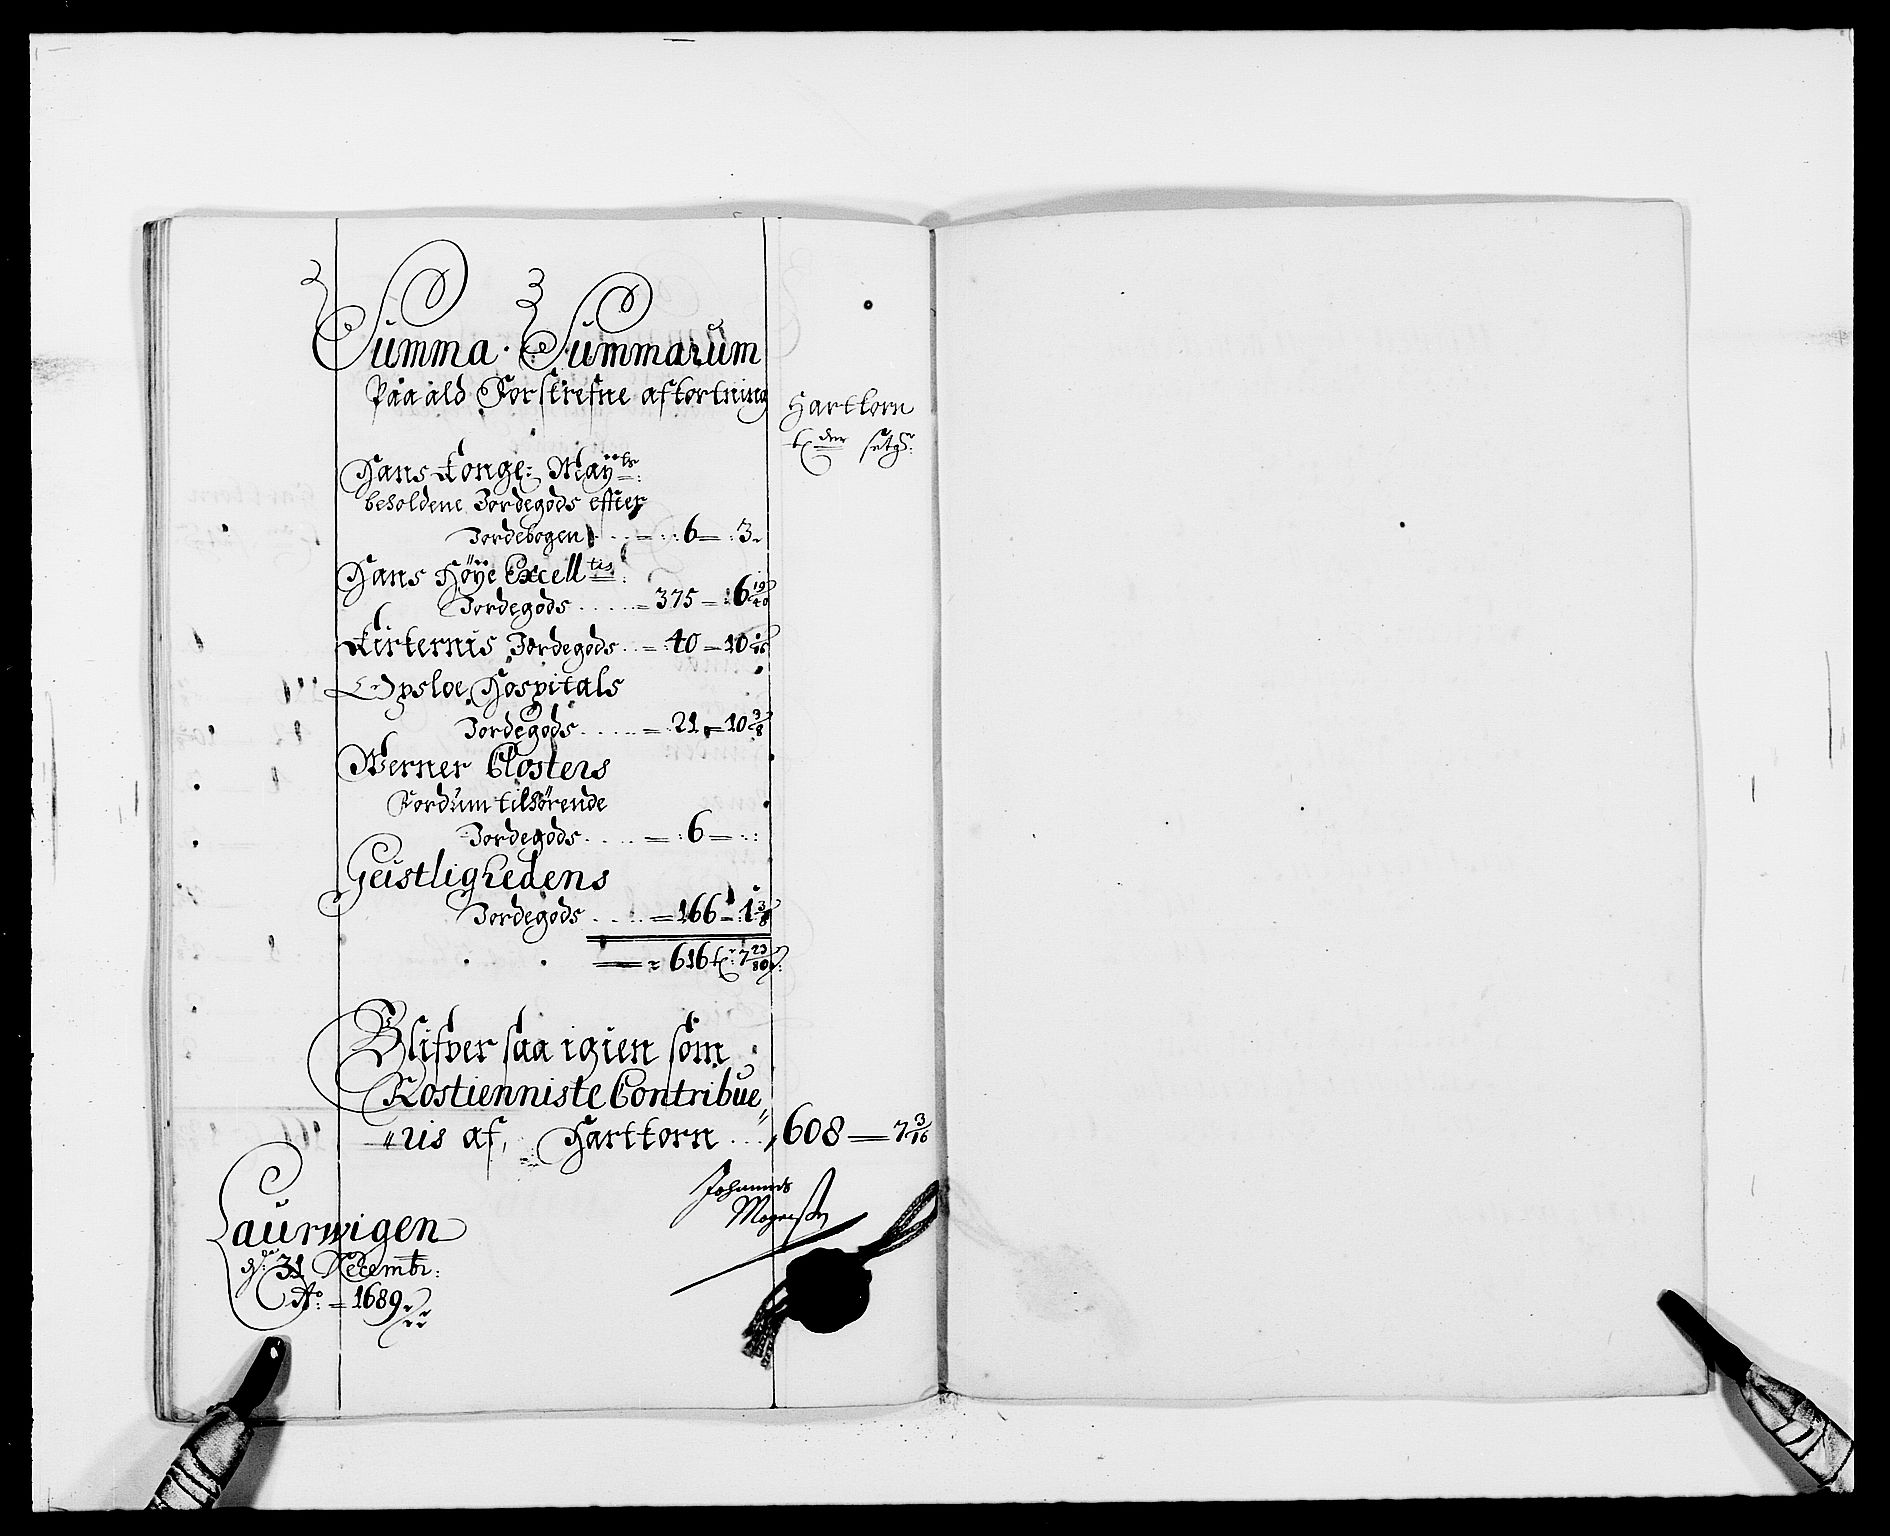 Summa Summarum
Paa ald Forskrefne afkortning
Hartkorn
tdr setg:
Hans Kongl: May:ts
beholdene Jordegods effter
Jordebogen . . = . 6 = : 3.
Hans Høÿe Excell:tis
Jordegods . . . . . = 375 = 6 19/40
Kirkernis Jordegods . . = 40 = 10 1/16
Opsloe Hospitals
Jordegods . . . . . = 21 = 10 3/8
Werner Closters
Fordum tilhörende
Jordegods . . . . = : 6 = . . :
Geistlighedens
Jordegods . . . . = 166 = 1 3/8
= 616 t: 7 23/80
Blifver saa igien som
Rostienniste Contribue
"ris af, Harttorn . . . 608 = 7 3/16
Johannes
Mogensen
Laurwigen
d: 31 Decembr:
Ao: = 1689